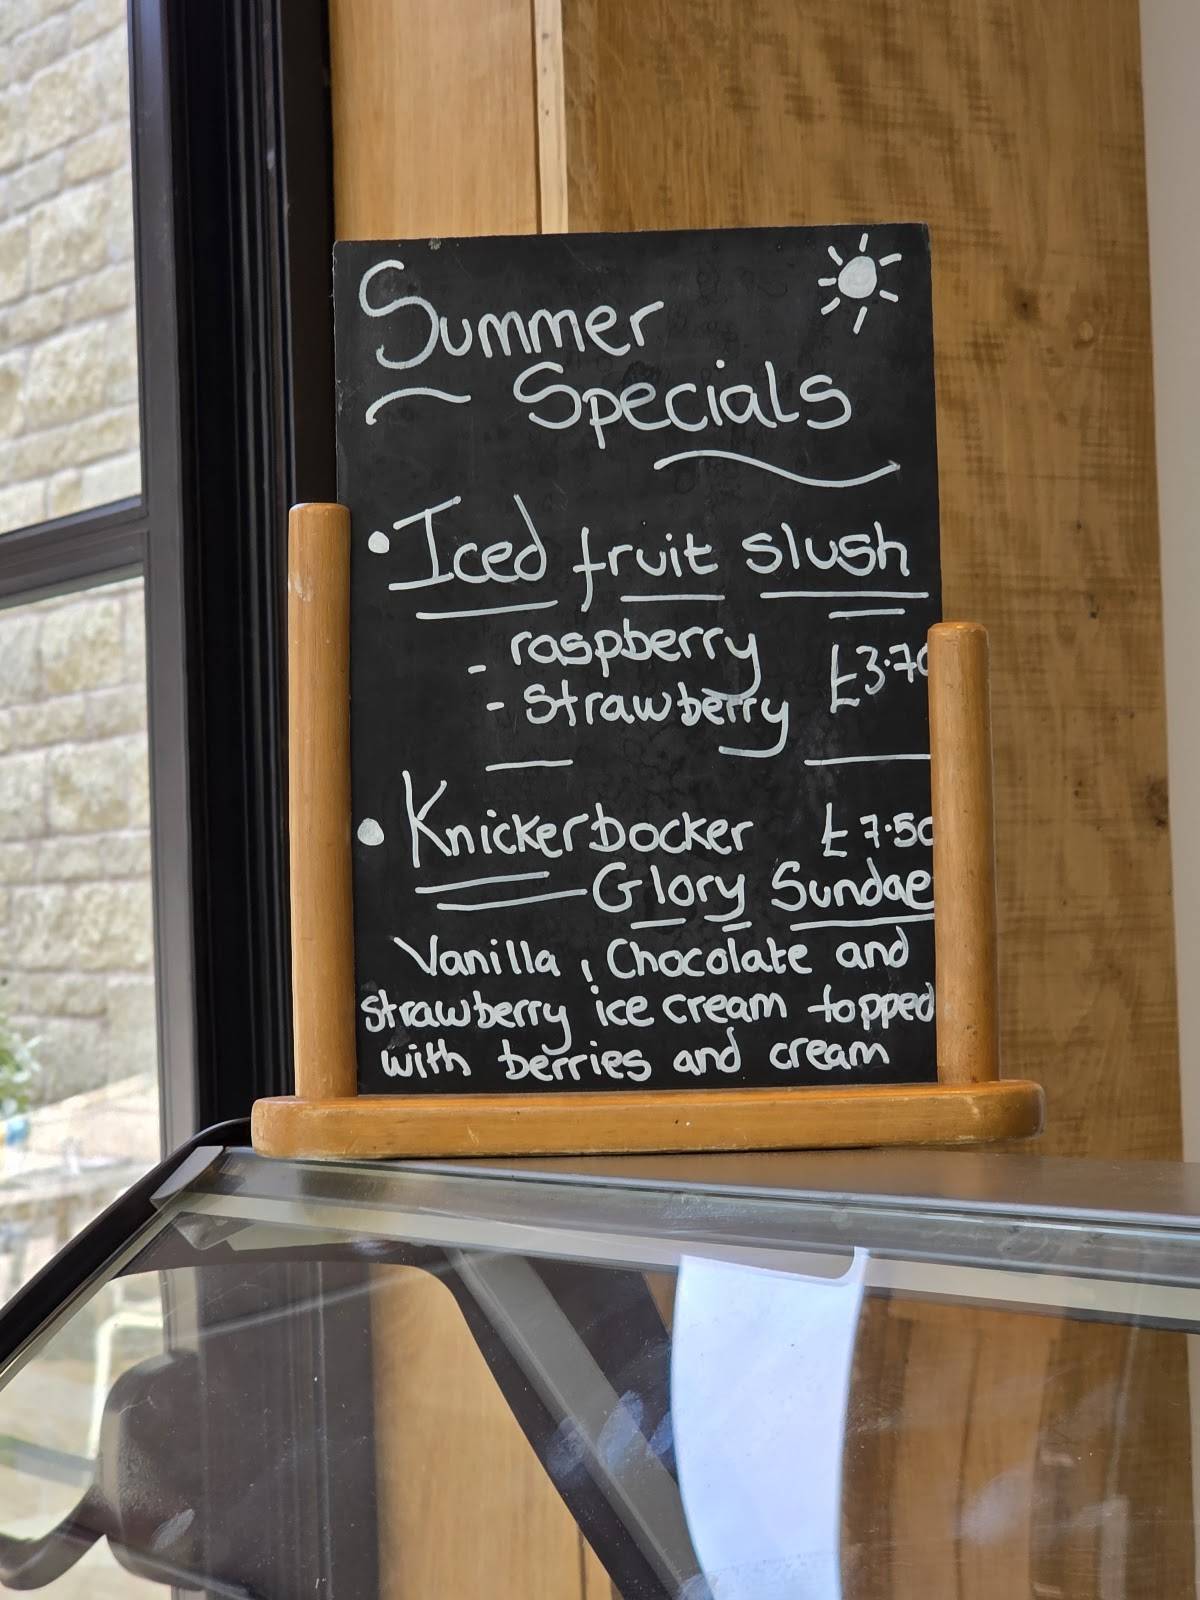 Summer
Specials
• Iced fruit slush
- raspberry
- strawberry £3.70
• Knickerbocker £7.50
Glory Sundae
Vanilla, Chocolate and
strawberry ice cream topped
with berries and cream